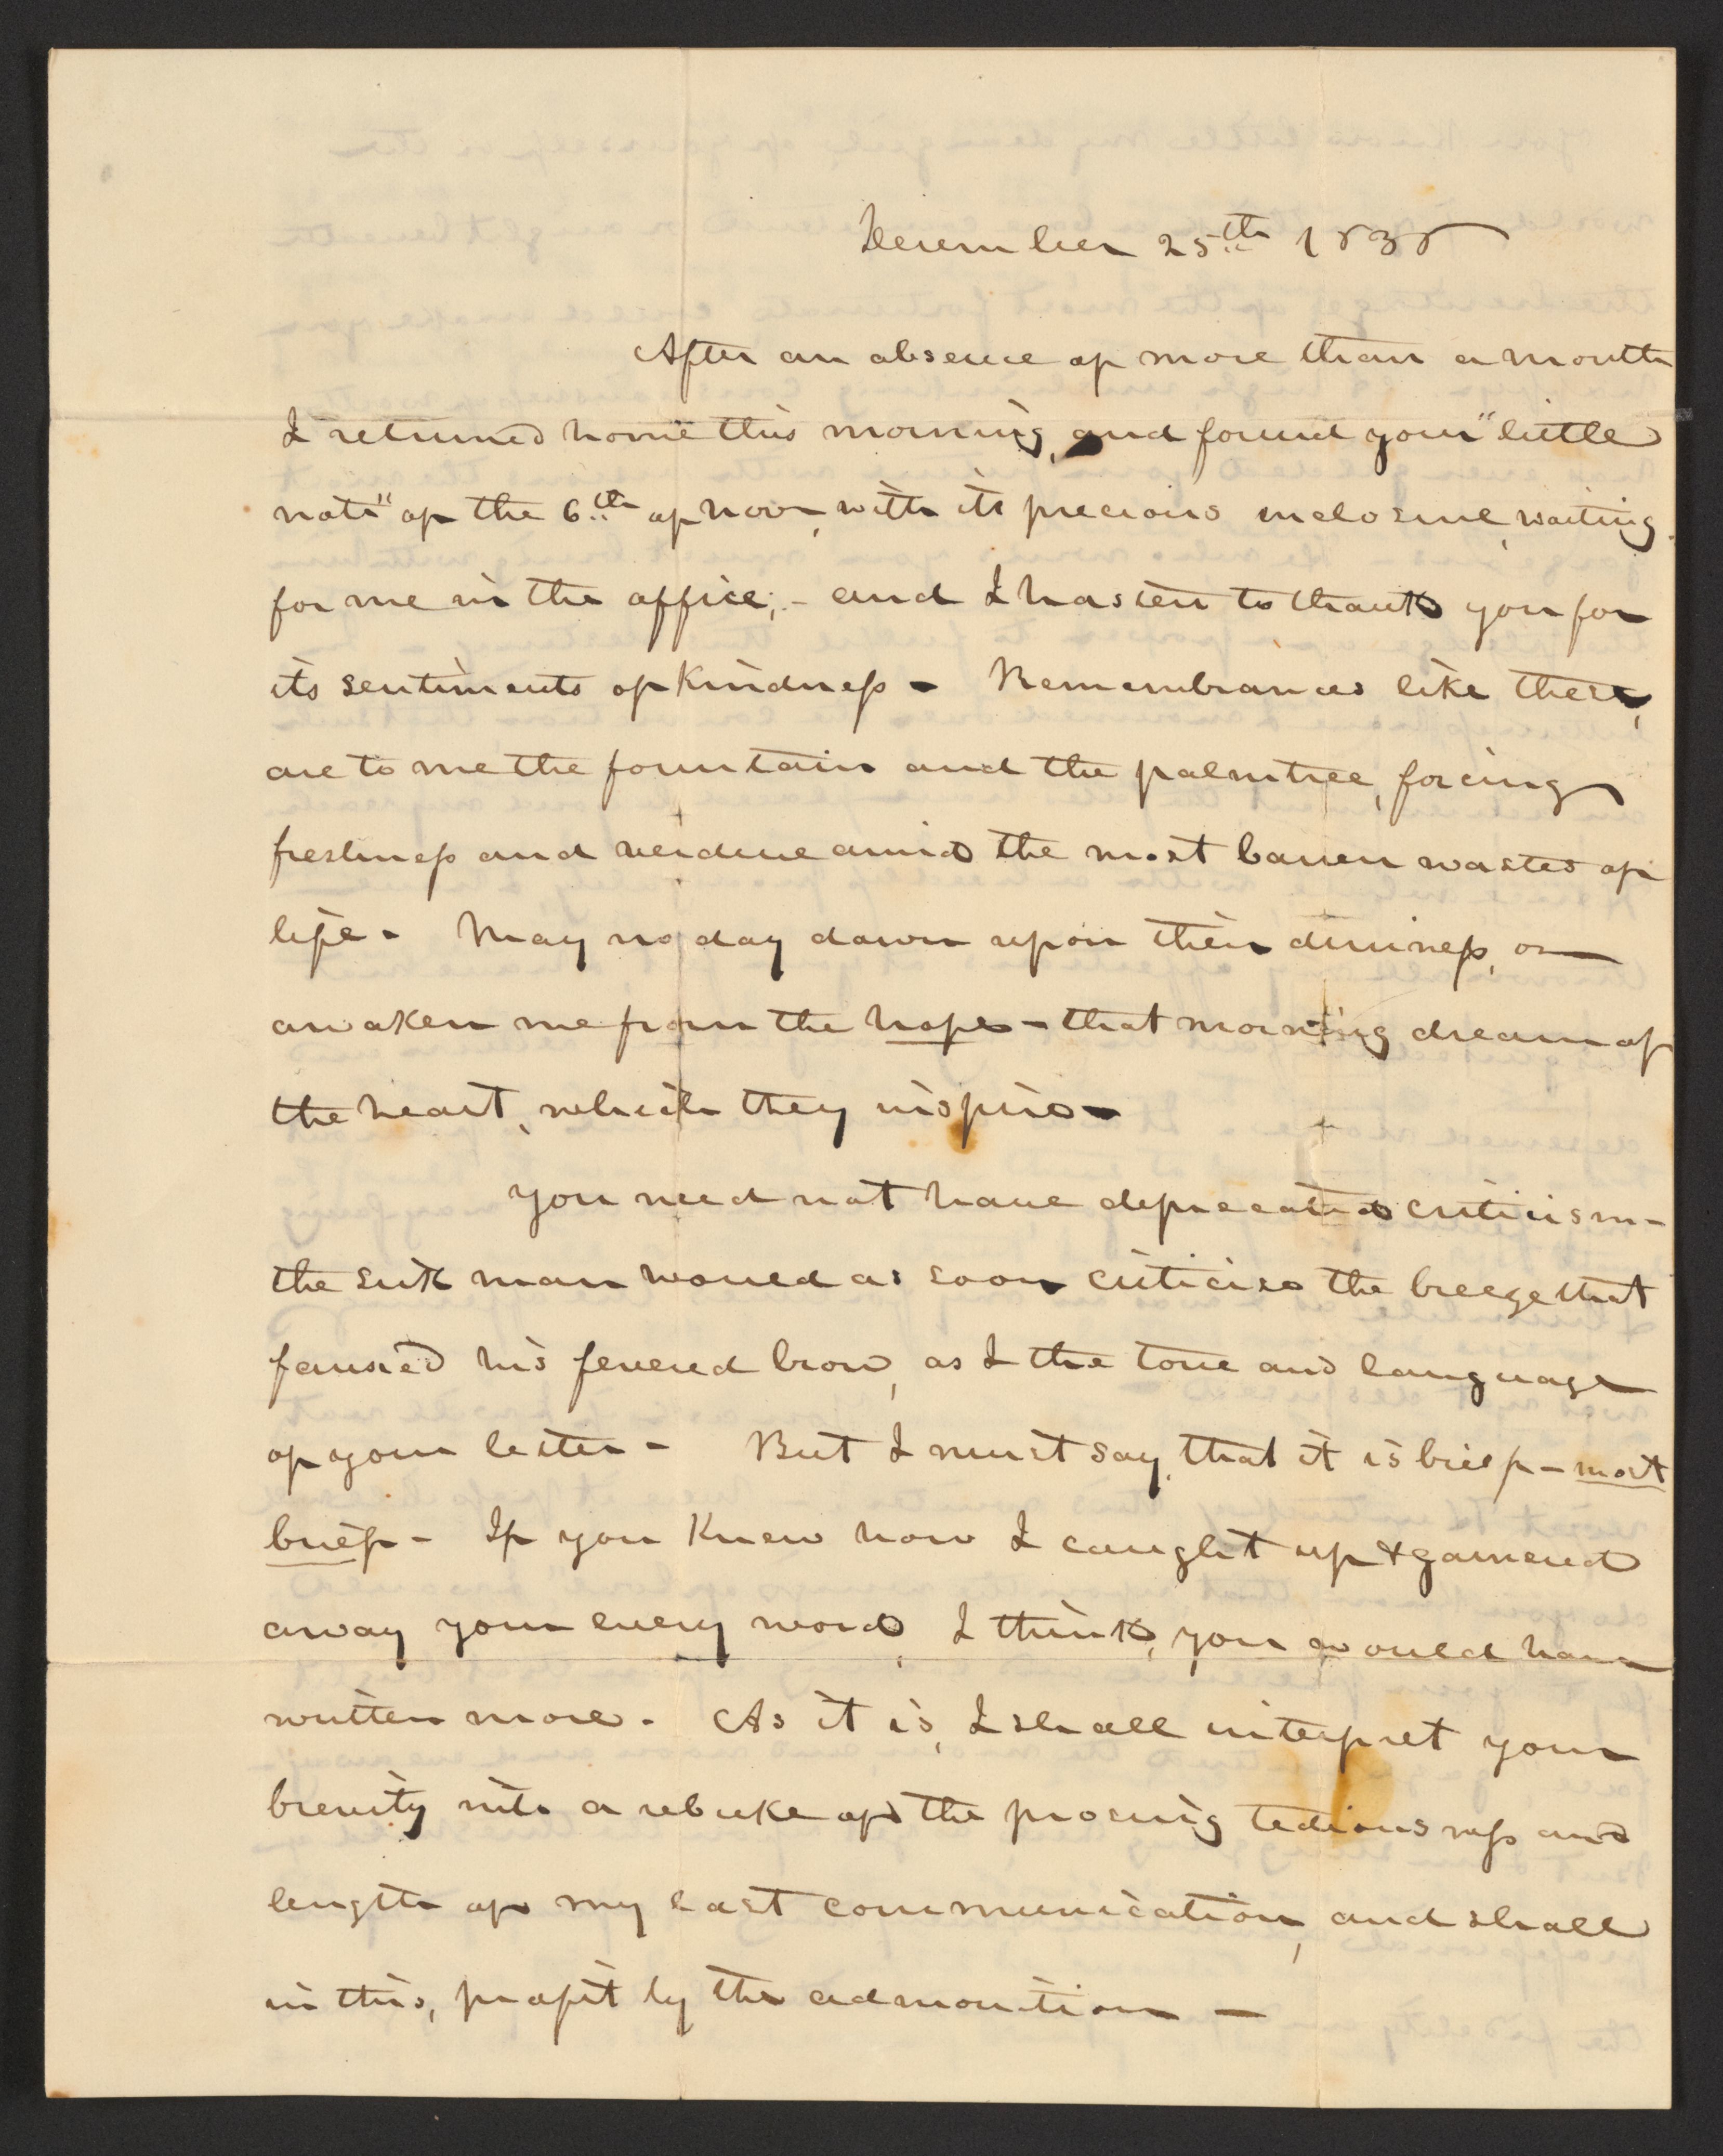 December 25th 1838
After an absence of more than a month
I returned home this morning, and found your "little
note" of the 6th of Nov, with its precious inclosure, waiting
for me in the office; - and I hasten to thank you for
its sentiments of kindness - Remembrances like these,
are to me the fountain and the palmtree, forcing
freshness and verdure amid the most barren wastes of
life - May no day dawn upon their dimness, or
awaken me from the hope - that morning dream of
the heart, which they inspire -
You need not have deprecated criticism -
the sick man would as soon criticise the breeze that
fanned his fevered brow, as I the tone and language
of your letter - But I must say, that it is brief - most
brief - If you knew how I caught up & garnered
away your every word, I think, you would have
written more - As it is, I shall interpret your
brevity into a rebuke of the prosing tediousness and
length of my last communication, and shall
in this, profit by the admonition -